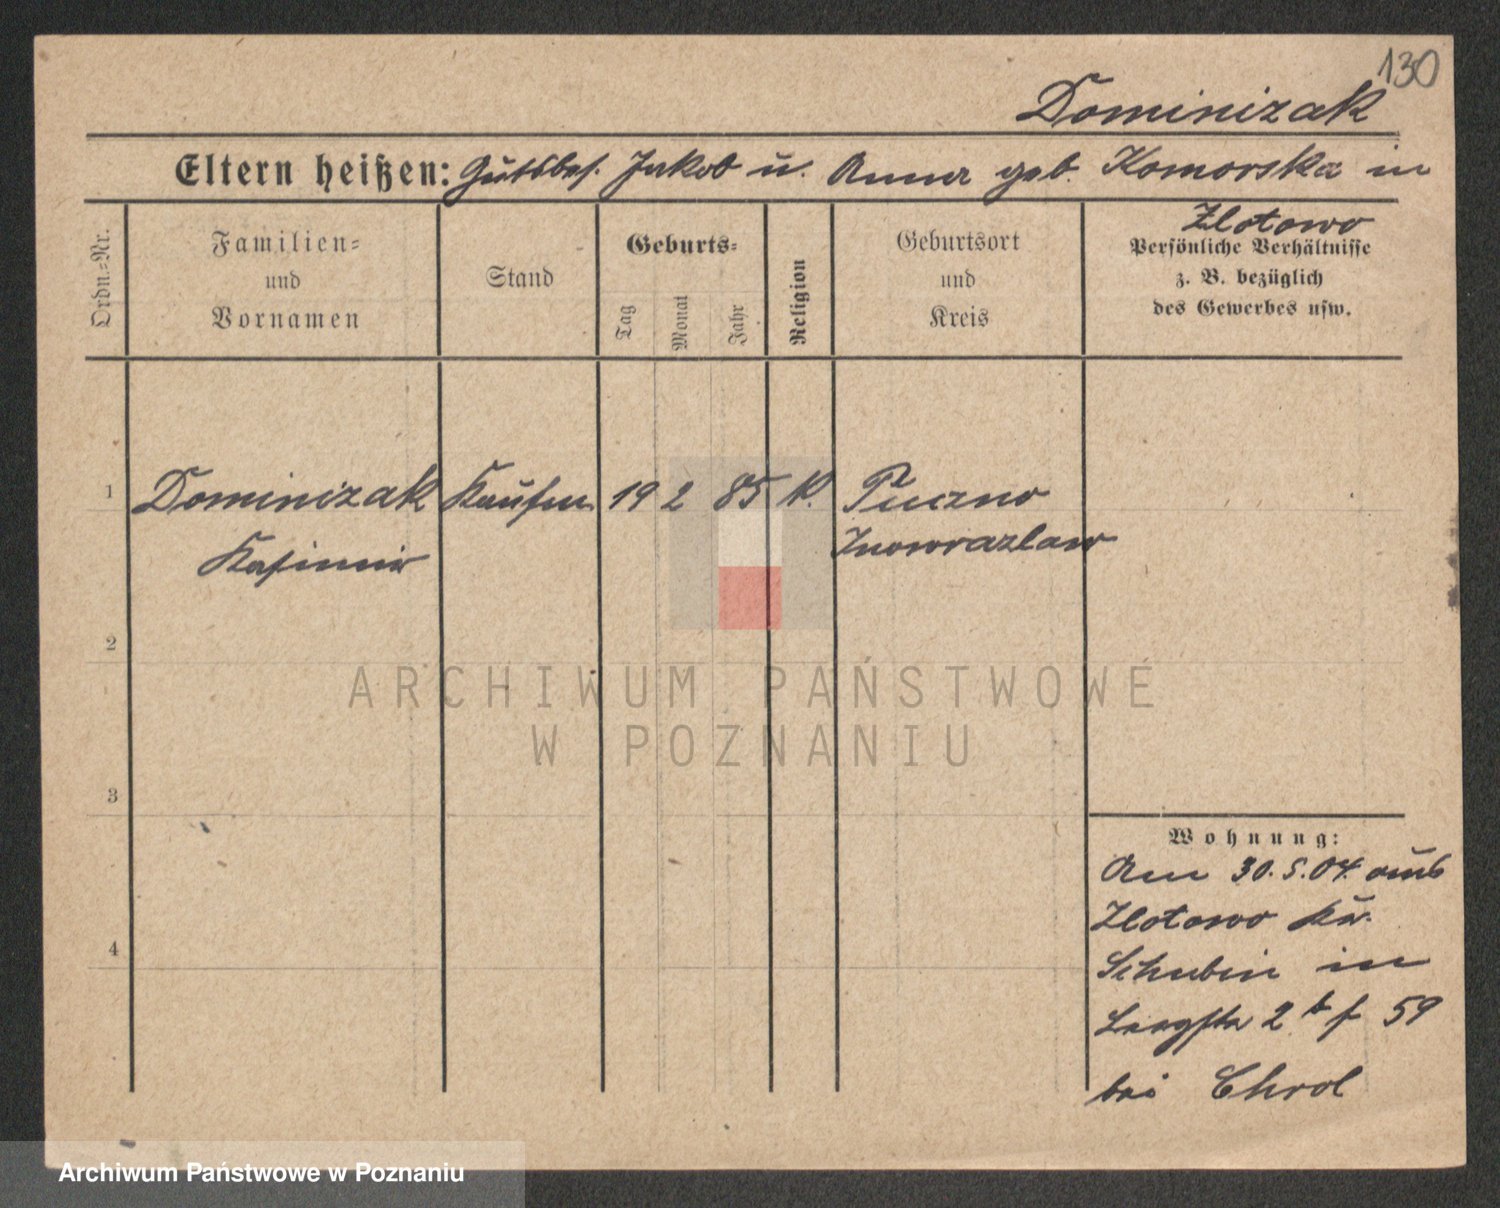 130
Dominizak
Eltern heißen: Gutsbes. Jakob u. Anna geb. Komorska in
Zlotowo
Ordn.-Nr.
Familien-
und
Vornamen
Stand
Geburts-
Tag
Monat
Jahr
Religion
Geburtsort
und
Kreis
Persönliche Verhältnisse
z. B. bezüglich
des Gewerbes usw.
1 Dominizak Kaufm 19 2 85 K.
Kasimir Inowrazlaw
2
3
4
Wohnung:
Am 30.5.04. aus
Zlotowo Kr.
Schubin in
2 b f 59
bei Chrol
ARCHIWUM PAŃSTWOWE
W POZNANIU
Archiwum Państwowe w Poznaniu